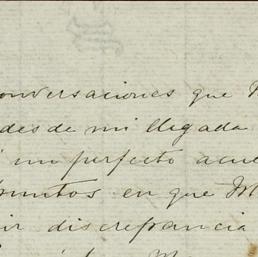 conversaciones que
desde mi llegada
un perfecto acue
puntos en que M
ir discrepancia